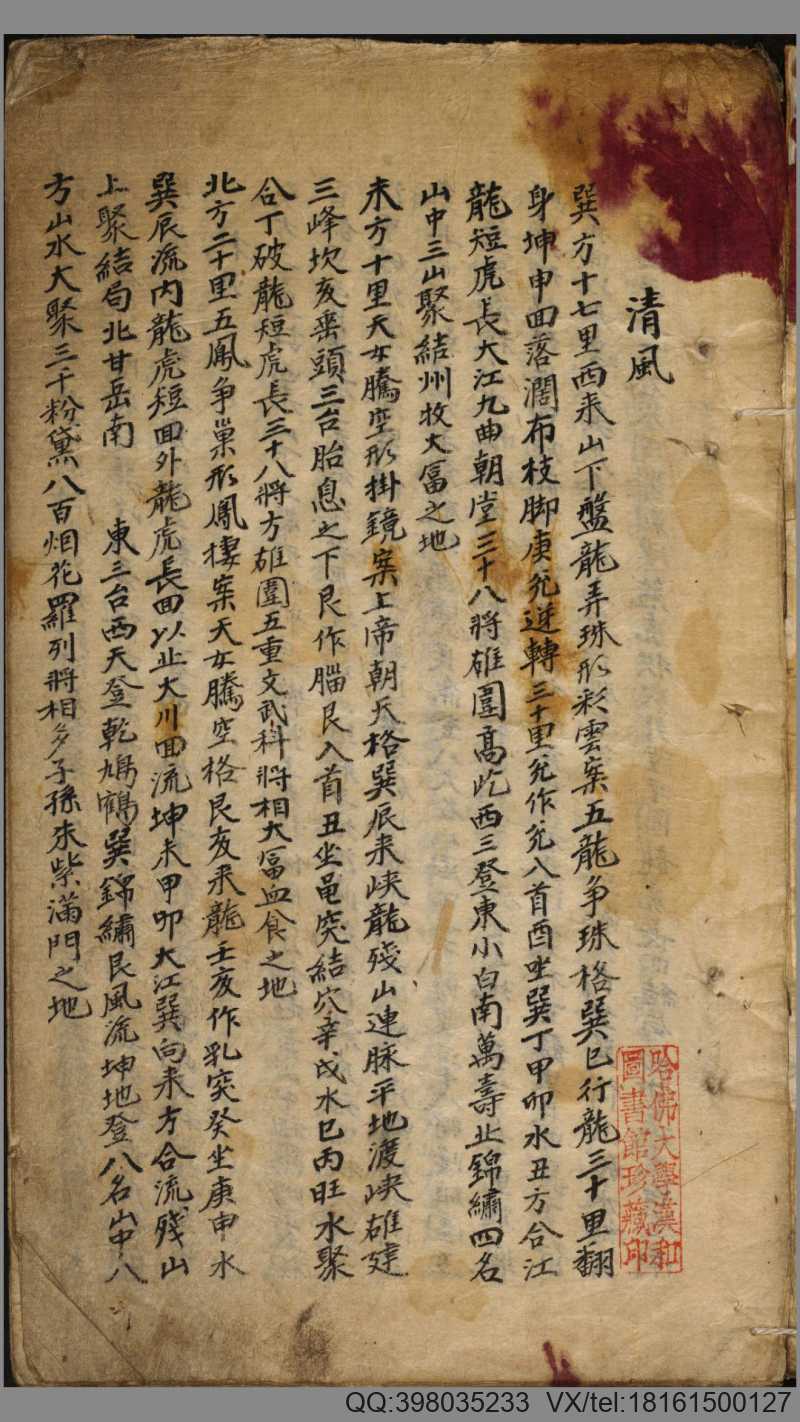 清風
巽方十七里西来山下盤龍弄珠形彩雲案五龍争珠格巽巳行龍三十里翻
身坤申回落濶布枝脚庚兊逆轉三十里兊作兊入首酉坐巽丁甲卯水丑方合江
龍短虎長大江九曲朝堂三十八將雄圍高屹西三登東小白南萬壽北錦繡四名
山中三山聚結州牧大冨之地
未方十里天女騰空形掛鏡案上帝朝天格巽辰来峽龍殘山連脉平地渡峽雄建
三峰坎亥垂頭三台胎息之下艮作腦艮入首丑坐黾突結穴辛戌水巳丙旺水聚
合丁破龍短虎長三十八將方雄圍五重文武科將相大冨血食之地
北方二十里五鳳争巢形鳳樓案天女騰空格艮亥来龍壬亥作乳突癸坐庚申水
巽辰流内龍虎短回外龍虎長回以止大川回流坤未甲卯大江巽向未方合流殘山
上聚結局北甘岳南 東三台西天登乾鳩鶴巽錦繡艮風流坤地登八名山中八
方山水大聚三千粉黛八百烟花羅列將相多子孫朱紫滿門之地
哈佛大學漢和
圖書館珍藏印
QQ:398035233 VX/tel:18161500127